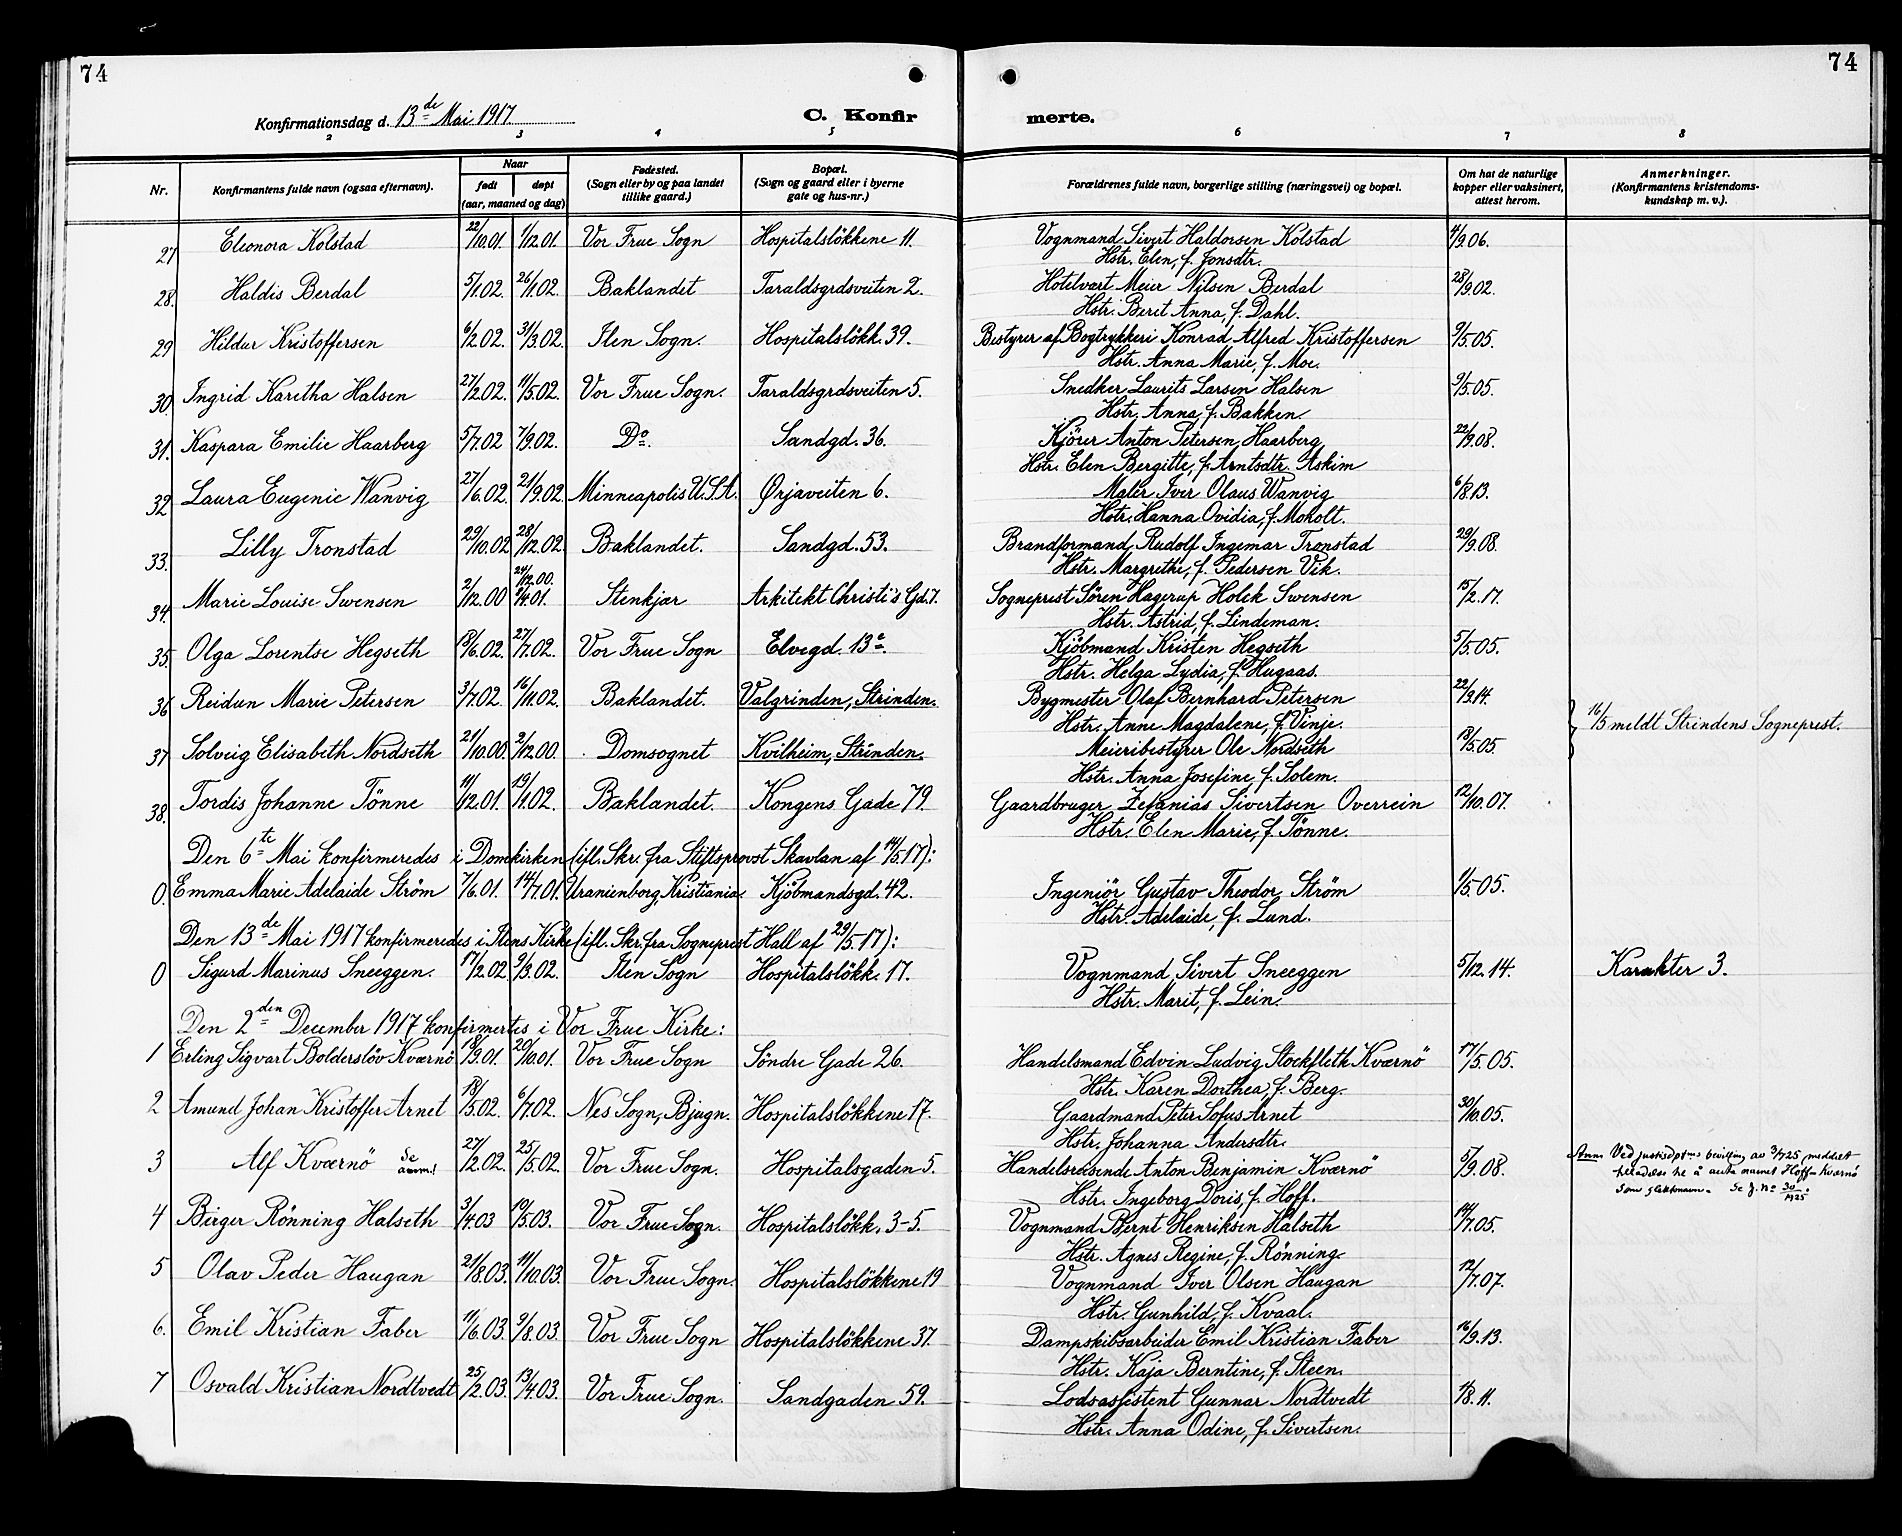 74
74
Konfirmationsdag d. 13de Mai 1917
C. Konfir
merte.
2 3 4 5 6 7 8
Nr. Konfirmantens fulde navn (ogsaa efternavn). Naar født døpt (aar, maaned og dag) Fødested. (Sogn eller by og paa landet tillike gaard.) Bopæl. (Sogn og gaard eller i byerne gate og hus-nr.) Forældrenes fulde navn, borgerlige stilling (næringsvei) og bopæl. Om hat de naturlige kopper eller vaksinert, attest herom. Anmerkninger. (Konfirmantens kristendoms-kundskap m. v.).
27 Eleonora Kolstad 22/10.01. 1/12.01. Vor Frue Sogn Hospitalsløkkene 11. Vognmand Sivert Haldorsen Kolstad 4/9.06.
Hstr. Elen, f. Jonsdtr.
28. Haldis Berdal 5/1.02. 26/1.02. Baklandet Taraldsgrdsveiten 2. Hotelvært Meier Nilsen Berdal 28/9.02.
Hstr. Berit Anna, f. Dahl.
29 Hildur Kristoffersen 6/2.02. 31/3.02. Ilen Sogn. Hospitalsløkk. 39. Bestyrer af Bogtrykkeri Konrad Alfred Kristoffersen 9/5.05.
Hstr. Anna Marie, f. Moe.
30. Ingrid Karetha Halsen 27/2.02. 11/5.02. Vor Frue Sogn. Taraldsgrdsveiten 5. Snedker Laurits Larsen Halsen 9/5.05.
Hstr. Anna, f. Bakken.
31. Kaspara Emilie Haarberg 5/7.02 7/9.02. Do. Sandgd. 36. Kjörer Anton Petersen Haarberg 22/9.08.
Hstr. Elen Bergitte, f. Arntsdtr. Askim
32 Laura Eugenie Wanvig 27/6.02. 21/9.02. Minneapolis U.S.A. Ørjaveiten 6. Maler Iver Olaus Wanvig 6/8.13.
Hstr. Hanna Ovidia, f. Moholt.
33. Lilly Tronstad 29/10.02 28/12.02. Baklandet. Sandgd. 53. Brandformand Rudolf Ingemar Tronstad 29/9.08.
Hstr. Margrethe, f. Pedersen Vik.
24/12.00.
34. Marie Louise Swensen 2/12.00 9/4.01. Stenkjær Arkitekt Christi's Gd. 7. Sogneprest Sören Hagerup Holck Swensen 15/2.17.
Hstr. Astrid, f. Lindeman.
35. Olga Lorentse Hegseth 18/6.02. 27/7.02. Vor Frue Sogn Elvegd. 13a. Kjöbmand Kristen Hegseth 5/5.05.
Hstr. Helga Lydia, f. Hugaas.
36 Reidun Marie Petersen 3/7.02. 16/11.02. Baklandet. Valgrinden, Strinden. Bygmester Olaf Bernhard Petersen 22/9.14.
Hstr. Anne Magdalene, f. Vinje. 16/5 meldt Strindens Sogneprest.
37 Solveig Elisabeth Nordseth 21/10.00 2/12.00. Domsognet Kvilheim, Strinden. Meieribestyrer Ole Nordseth 18/5.05.
Hstr. Anna Josefine, f. Solem.
38. Tordis Johanne Tönne 11/12.01. 19/1.02. Baklandet. Kongens Gade 79. Gaardbruger Zefanias Sivertsen Overrein 12/10.07.
Hstr. Elen Marie, f. Tönne.
Den 6te Mai konfirmeredes i Domkirken (ifl. Skr. fra Stiftsprovst Skavlan af 14/5.17):
0. Emma Marie Adelaide Ström 7/6.01. 14/7.01. Uranienborg, Kristiania. Kjöbmandsgd. 42. Ingeniör Gustav Theodor Ström 1/5.05.
Hstr. Adelaide, f. Lund.
Den 13de Mai 1917 konfirmeredes i Ilens Kirke (ifl. Skr. fra Sogneprest Hall af 29/5.17):
0 Sigurd Marinus Sneeggen. 17/2.02. 9/3.02. Ilen Sogn Hospitalslökk. 17. Vognmand Sivert Sneeggen 5/12.14. Karakter 3.
Hstr. Marit, f. Lein.
Den 2den December 1917 konfirmertes i Vor Frue Kirke:
1 Erling Sigvart Bolderslöv Kværnö 18/9.01. 20/10.01. Vor Frue Sogn Söndre Gade 26. Handelsmand Edvin Ludvig Stockfleth Kværnö 17/5.05.
Hstr. Karen Dorthea, f. Berg.
2 Amund Johan Kristoffer Arnet 18/5.02. 6/7.02. Nes Sogn, Bjugn. Hospitalslökkene 17. Gaardmand Peter Sofus Arnet 30/10.05.
Hstr. Johanna Andersdtr.
3 Alf Kværnö Se anm.! 27/2.02. 25/5.02. Vor Frue Sogn. Hospitalsgaden 5. Handelsreisende Anton Benjamin Kværnö 5/9.08. Anm. Ved justisdptms bevilling av 3/7 25 meddelt
Hstr. Ingeborg Doris, f. Hoff. navnet Hoff-Kværnö
som slektsnavn. Se J. No 30/1925.
4 Birger Rönning Halseth 3/4.03 19/5.03. Vor Frue Sogn. Hospitalslökk. 3-5. Vognmand Bernt Henriksen Halseth 14/7.05.
Hstr. Agnes Regine, f. Rönning
5 Olav Peder Haugan 21/8.03. 11/10.03. Vor Frue Sogn. Hospitalslökkene 19 Vognmand Iver Olsen Haugan 12/7.07.
Hstr. Gunhild, f. Kvaal.
6. Emil Kristian Faber 11/6.03. 9/8.03. Vor Frue Sogn Hospitalslökkene 37. Dampskibsarbeider Emil Kristian Faber 16/9.13.
Hstr. Kaja Berntine, f. Steen.
7 Osvald Kristian Nordtvedt 25/2.03. 13/4.03. Vor Frue Sogn. Sandgaden 59. Lodsassistent Gunnar Nordtvedt 1/8.11.
Hstr. Anna Odine, f. Sivertsen.